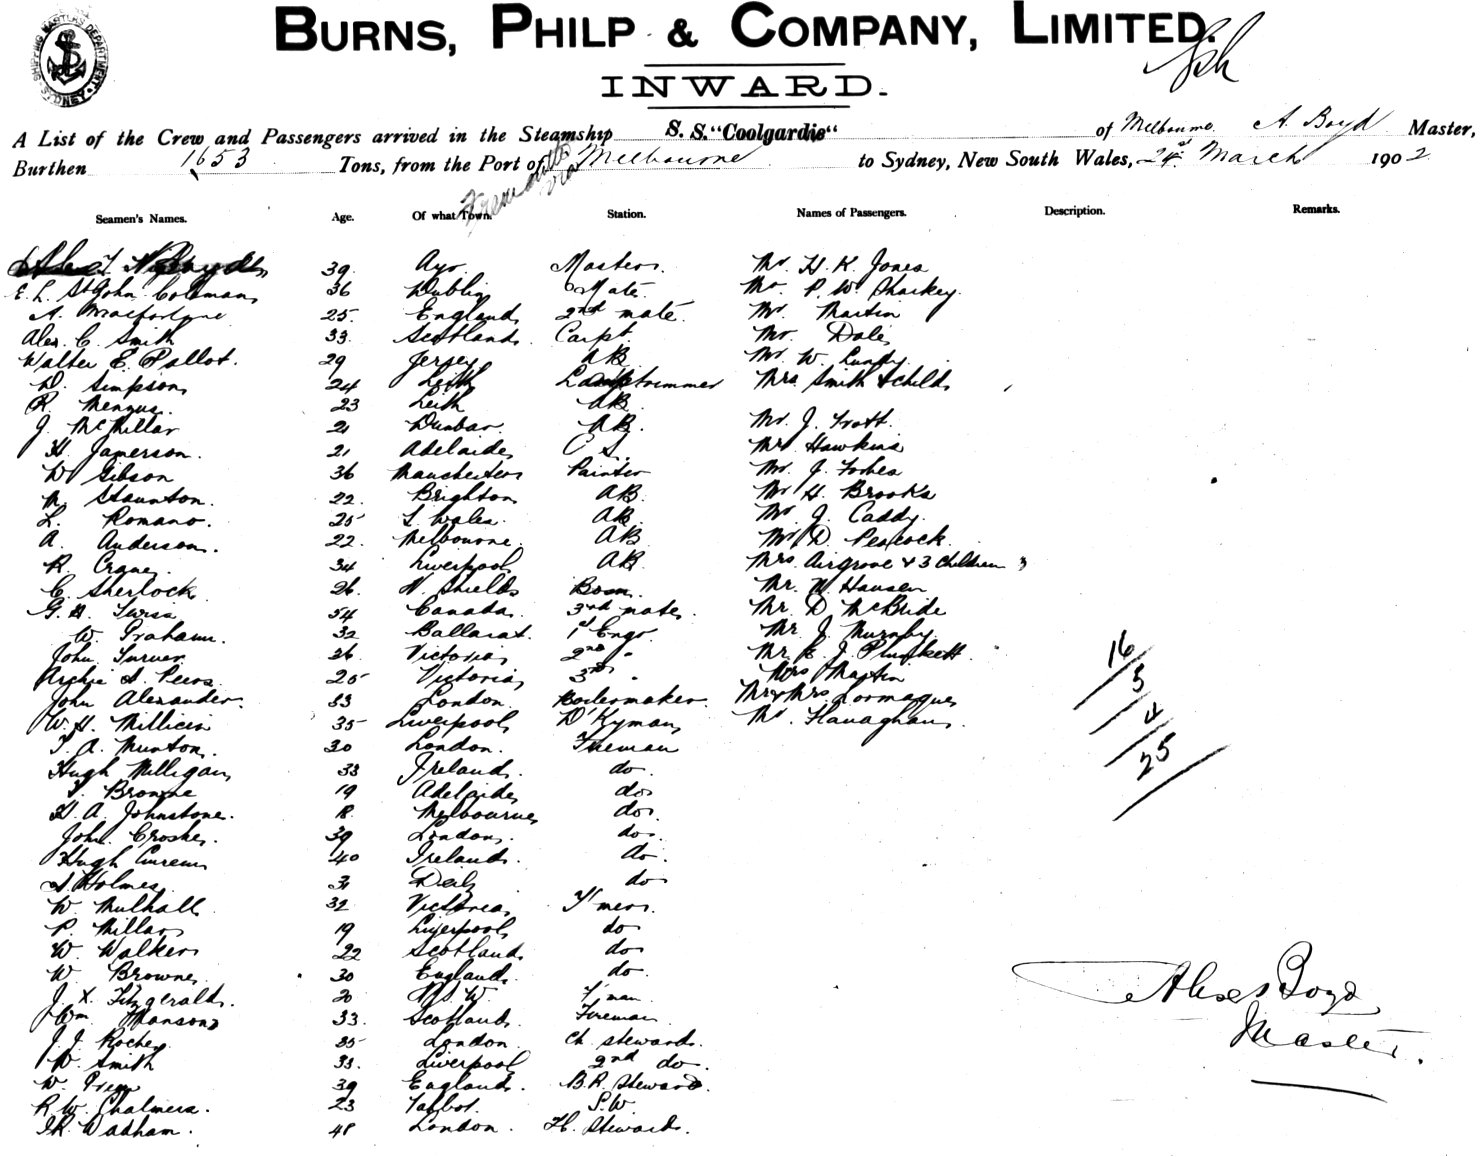 BURNS, PHILP & COMPANY, LIMITED.
INWARD.
SHIPPING MASTERS DEPARTMENT SYDNEY
A List of the Crew and Passengers arrived in the Steamship S. S. "Coolgardie" of Melbourne A. Boyd Master,
Burthen 1653 Tons, from the Port of Fremantle via Melbourne to Sydney, New South Wales, 24 March 1902
Seamen's Names. Age. Of what Town. Station. Names of Passengers. Description. Remarks.
39 Ayr Master Mr H. K. Jones
E. L. St John Coleman 36 Dublin Mate Mr P. W. Sharkey
A. Macfarlane 25 England 2nd mate Mr Martin
Alex. C. Smith 33 Scotland Carpt Mr Dale
Walter E. Pallot. 29 Jersey AB Mr W. Lundy
D. Simpson 24 Leith Lamptrimmer Mrs Smith & child
R. Mengus 23 Leith AB
J. McMillar 21 Dunbar AB. Mr. J. Trott.
H. Jamerson. 21 Adelaide O S. Mr Hawkins
D Gibson 36 Manchester Painter Mr J. Forbes
M Staunton. 22 Brighton AB. Mr H. Brooks
L. Romano. 25 S. Wales. AB Mr J. Caddy.
A. Anderson. 22 Melbourne. AB Mr D. Peacock.
R. Crane. 34 Liverpool AB Mrs Airgrove & 3 Children
C. Sherlock. 26 N. Shields Bosn. Mr. N Hansen
G. H. Swiss 54 Canada. 3rd mate. Mr. D McBride
W. Graham. 32 Ballarat. 1st Engr. Mr J. Murnby
John Turner 26 Victoria 2nd " Mr E. J. Plunkett.
Archie A. Peers 25 Victoria 3rd " Mrs Martin
John Alexander 33 London Boilermaker Mr & Mrs Lormaques
W. H. Millicin 35 Liverpool D'Kyman Mr. Flanaghan
T. A. Munton. 30 London. Fireman
Hugh Milligan 33 Ireland. do.
T. Browne 19 Adelaide do
H. A. Johnstone. 18 Melbourne do
John Croske. 39 London. do.
Hugh 40 Ireland. do.
A. Holmes 31 do
W. Mulhall 32 Victoria T'mers.
P. Millar 19 Liverpool do
W. Walker 22 Scotland do
W. Browne 30 England. do.
J. X. Fitzgerald. 20 N.S.W T'man
Wm. Manson 33. Scotland. Fireman.
J. J. Roche 35 London. Ch. steward.
W. Smith 33. Liverpool 2nd do.
W. 39 England. B.R. Steward.
R. W. Chalmers. 23 Talbot. S.W.
Wadham. 48 London. F. C. Steward.
16
5
4
25
Alex Boyd
Master.